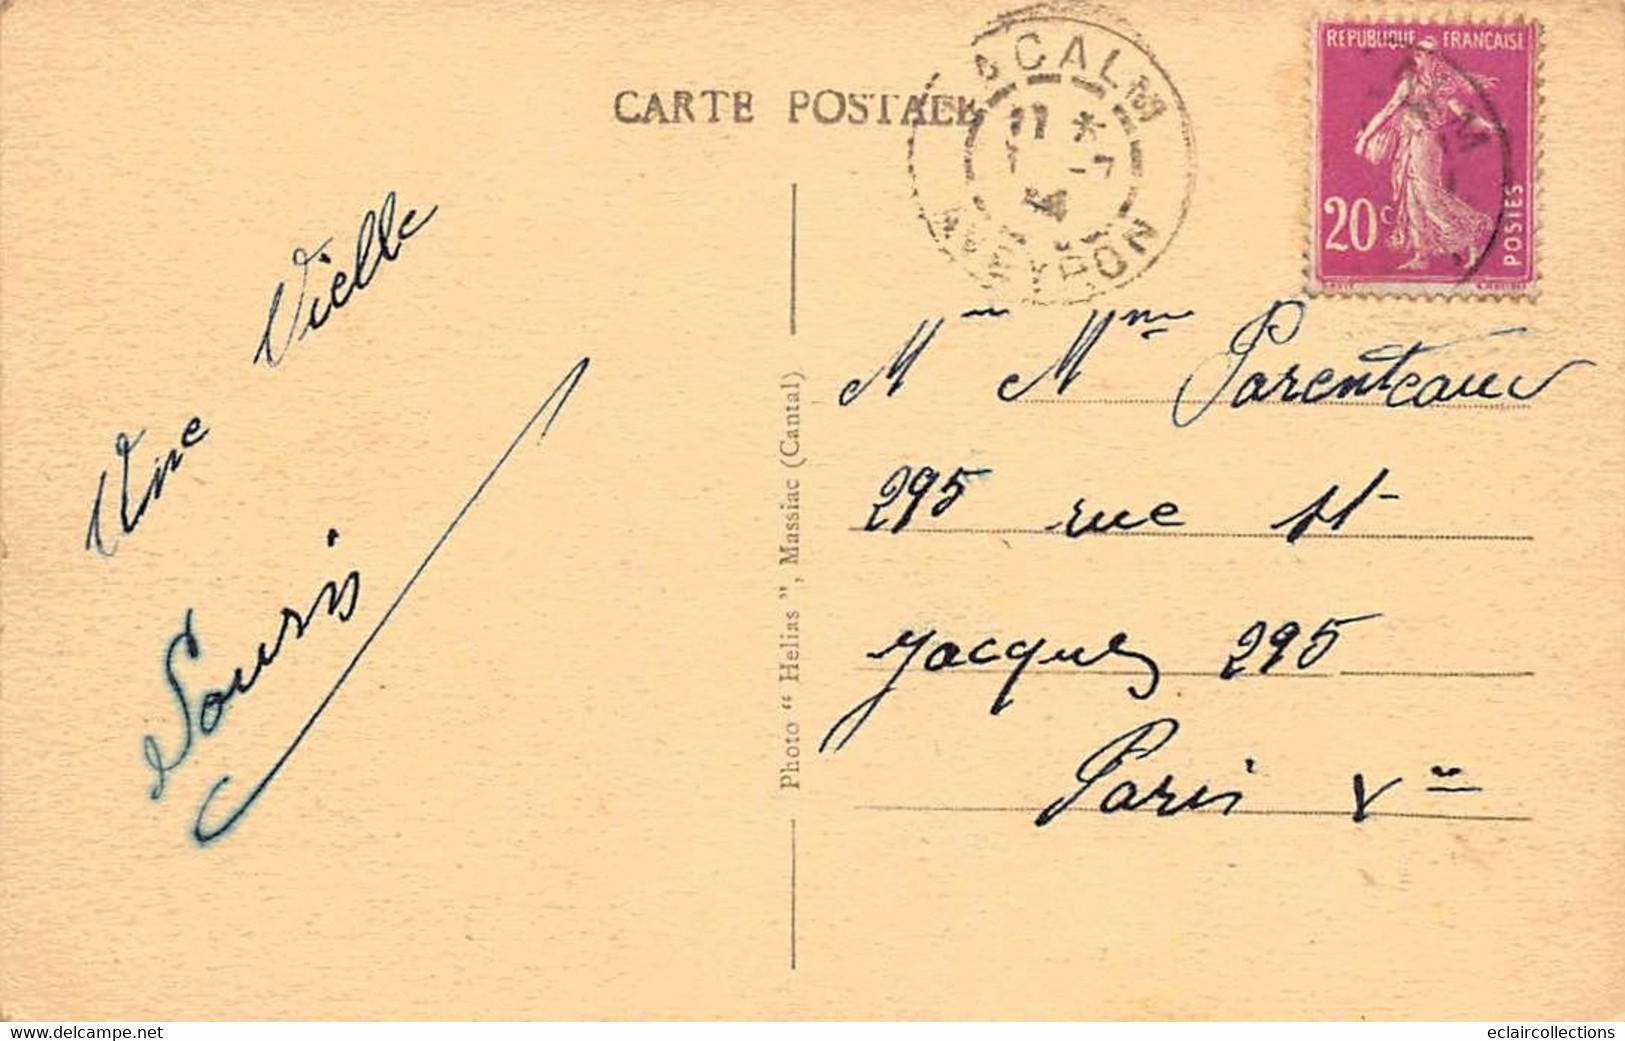 CARTE POSTALE
REPUBLIQUE FRANÇAISE
20c
POSTES
LACALM
AVEYRON
11 *
-7
Une Vielle
Souris
Photo “ Helias ”, Massiac (Cantal)
Mr Mme Parenteau
295 rue St
Jacques 295
Paris Vme
delcampe.net
eclaircollections